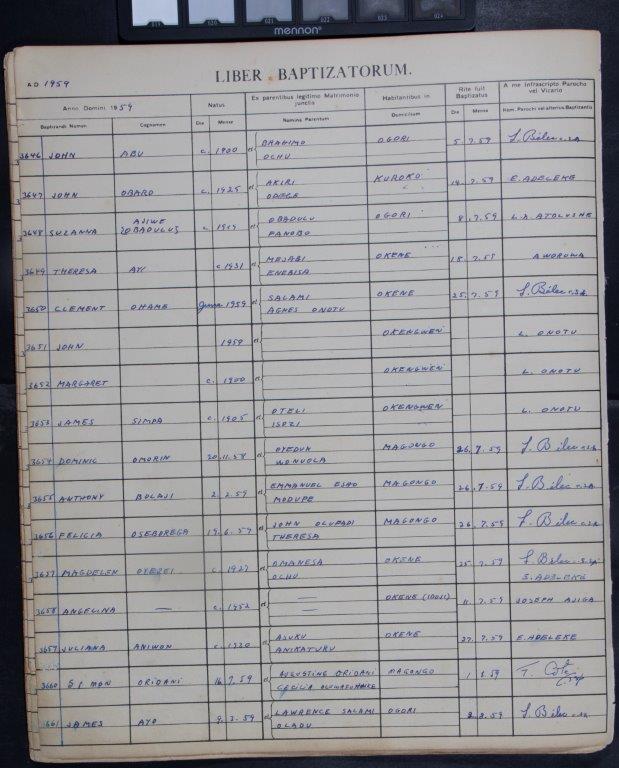 019 020 021 022 023 024
mennon
LIBER BAPTIZATORUM.
AD 1959
Anno Domini 1959 Natus Ex parentibus legitimo Matrimonio junctis Habitantibus in Rite fuit Baptizatus A me infrascripto Parocho vel Vicario
Baptizandi Nomen Cognomen Die Mense Nomina Parentum Domicilium Die Mense Nom. Parochi vel alterius Baptizantis
3646 JOHN ABU c. 1900 et BRAHIMO OGORI 5 7.59
OCHU
3647 JOHN OBARO c. 1925 et AKIRI KUROKO 14.7.59 E. ADELEKE
3648 SUZANNA AJIWE c 1919 et OBADULU OGORI 8.7.59
(OBADULU) FANOBO
3649 THERESA AYI c 1931 et MEJABI OKENE 15.7.59 AWORUWA
ENEBISA
3650 CLEMENT OHAME 1959 et SALAMI OKENE 25.7.59
AGNES ONOTU
3651 JOHN 1959 et OKENGWEN L. ONOTU
3652 MARGARET c. 1900 et OKENGWEN L. ONOTU
3653 JAMES SIMPA c. 1905 et OTELI OKENGWEN L. ONOTU
ISOZI
3654 DOMINIC OMORIN 20.11.58 et MAGONGO 26.7.59
WONUOLA
3655 ANTHONY BOLAJI 2.2.59 et EMMANUEL ESHO MAGONGO 26.7.59
MODUPE
3656 FELICIA OSEBOREGA 19.6.59 et JOHN OLUPADI MAGONGO 26.7.59
THERESA
3657 MAGDELEN OYEZEI c 1927 et OMANESA OKENE 25.7.59
OCHU S. ADELEKE
3658 ANGELINA — c. 1952 et — OKENE 11.7.59 JOSEPH AJIGA
—
3659 JULIANA ANIWON c. 1920 et ASUKU OKENE 27.7.59 E. ADELEKE
ANIKATURU
3660 SIMON ORIDANI 16.7.59 et AUGUSTINE ORIDANI MAGONGO 1.8.59
CECILIA
3661 JAMES AYO 9.3.59 et LAWRENCE SALAMI OGORI 2.8.59
OLADU